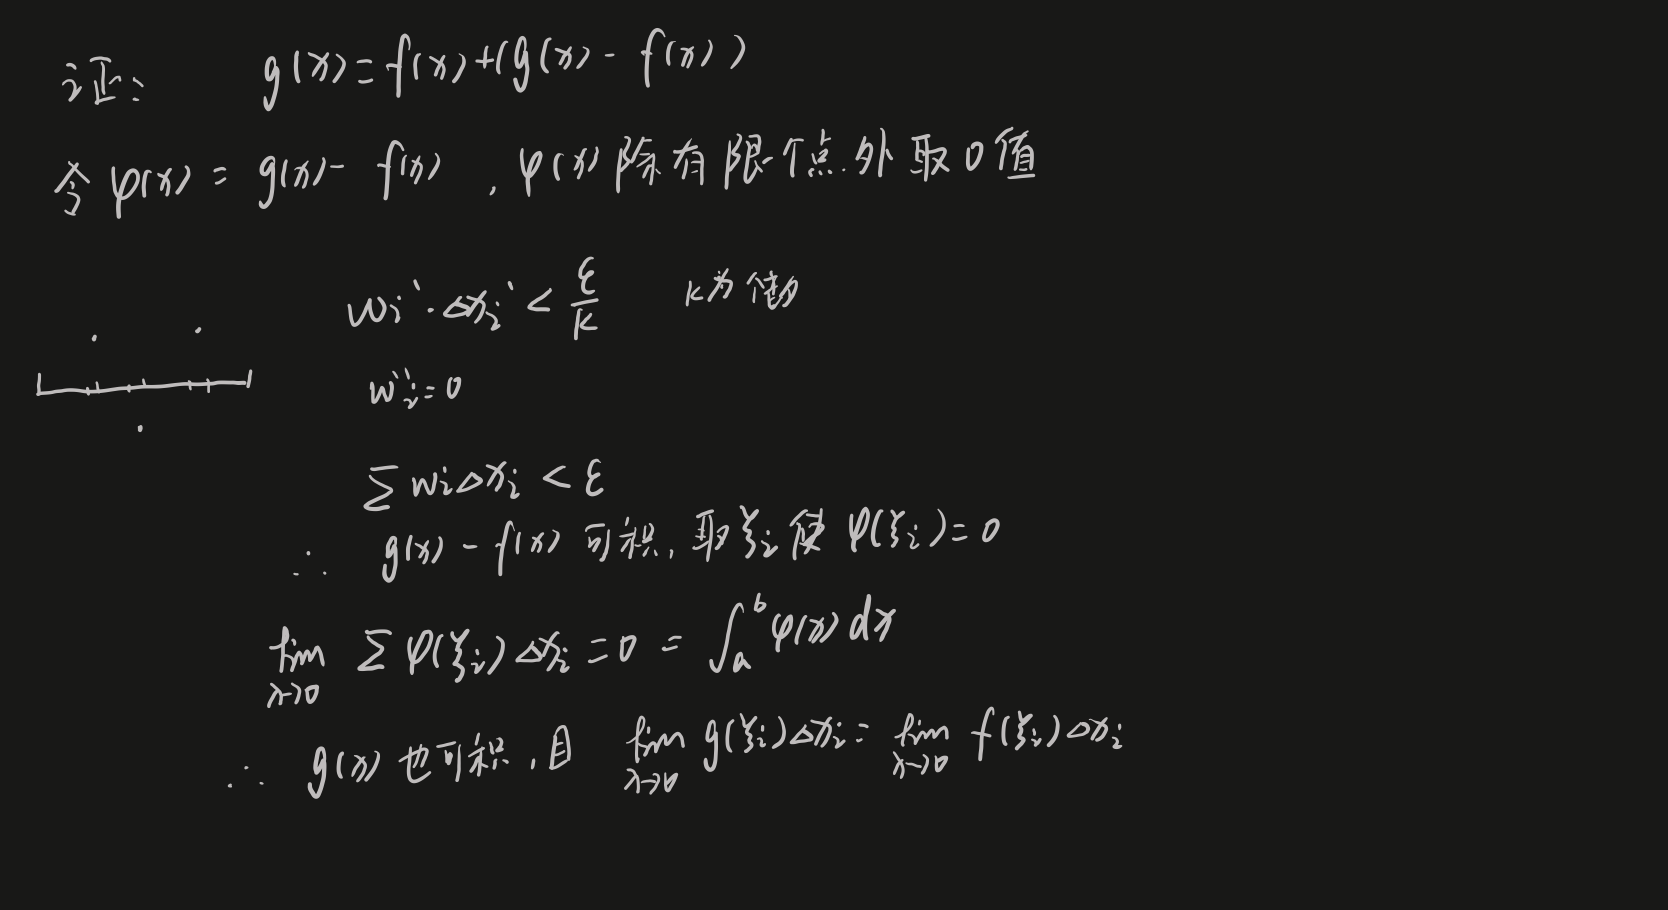 证: g(x)=f(x)+(g(x)-f(x))
令 φ(x) = g(x)- f(x) , φ(x) 除有限个点外取0值
wi'·△xi' < ε/k k为个数
wi''=0
∑wi△xi < ε
∴ g(x) - f(x) 可积, 取ξi使 φ(ξi)=0
lim λ→0 ∑φ(ξi)△xi =0 = ∫_a^b φ(x)dx
∴ g(x)也可积,且 lim λ→0 g(ξi)△xi= lim λ→0 f(ξi)△xi